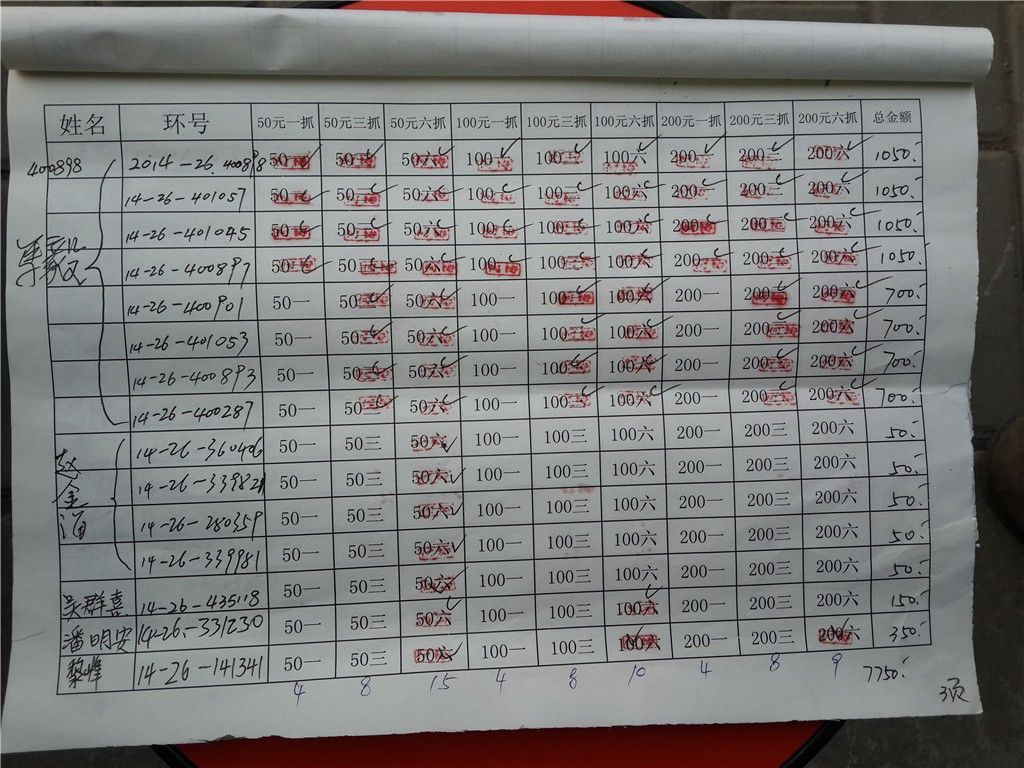 姓名 环号 50元一抓 50元三抓 50元六抓 100元一抓 100元三抓 100元六抓 200元一抓 200元三抓 200元六抓 总金额
400898 2014-26.400898 50 50 50六 100一 100三 100六 200一 200三 200六 1050.
14-26-401057 50 50三 50六 100一 100三 100六 200一 200三 200六 1050.
14-26-401045 50 50三 50六 100一 100三 100六 200一 200三 200六 1050.
14-26-400897 50 50三 50六 100一 100三 100六 200一 200三 200六 1050.
14-26-400901 50一 50三 50六 100一 100三 100六 200一 200三 200六 700.
14-26-401053 50一 50三 50六 100一 100三 100六 200一 200三 200六 700.
14-26-400893 50一 50三 50六 100一 100三 100六 200一 200三 200六 700.
14-26-400287 50一 50三 50六 100一 100三 100六 200一 200三 200六 700.
赵金海 14-26-360406 50一 50三 50六 100一 100三 100六 200一 200三 200六 50.
14-26-339821 50一 50三 50六 100一 100三 100六 200一 200三 200六 50.
14-26-280359 50一 50三 50六 100一 100三 100六 200一 200三 200六 50.
14-26-339981 50一 50三 50六 100一 100三 100六 200一 200三 200六 50.
吴群喜 14-26-435118 50一 50三 50六 100一 100三 100六 200一 200三 200六 50.
潘明安 14-26-331230 50一 50三 50六 100一 100三 100六 200一 200三 200六 150.
黎峰 14-26-141341 50一 50三 50六 100一 100三 100六 200一 200三 200六 350.
4 8 15 4 8 10 4 8 9 7750.
3页